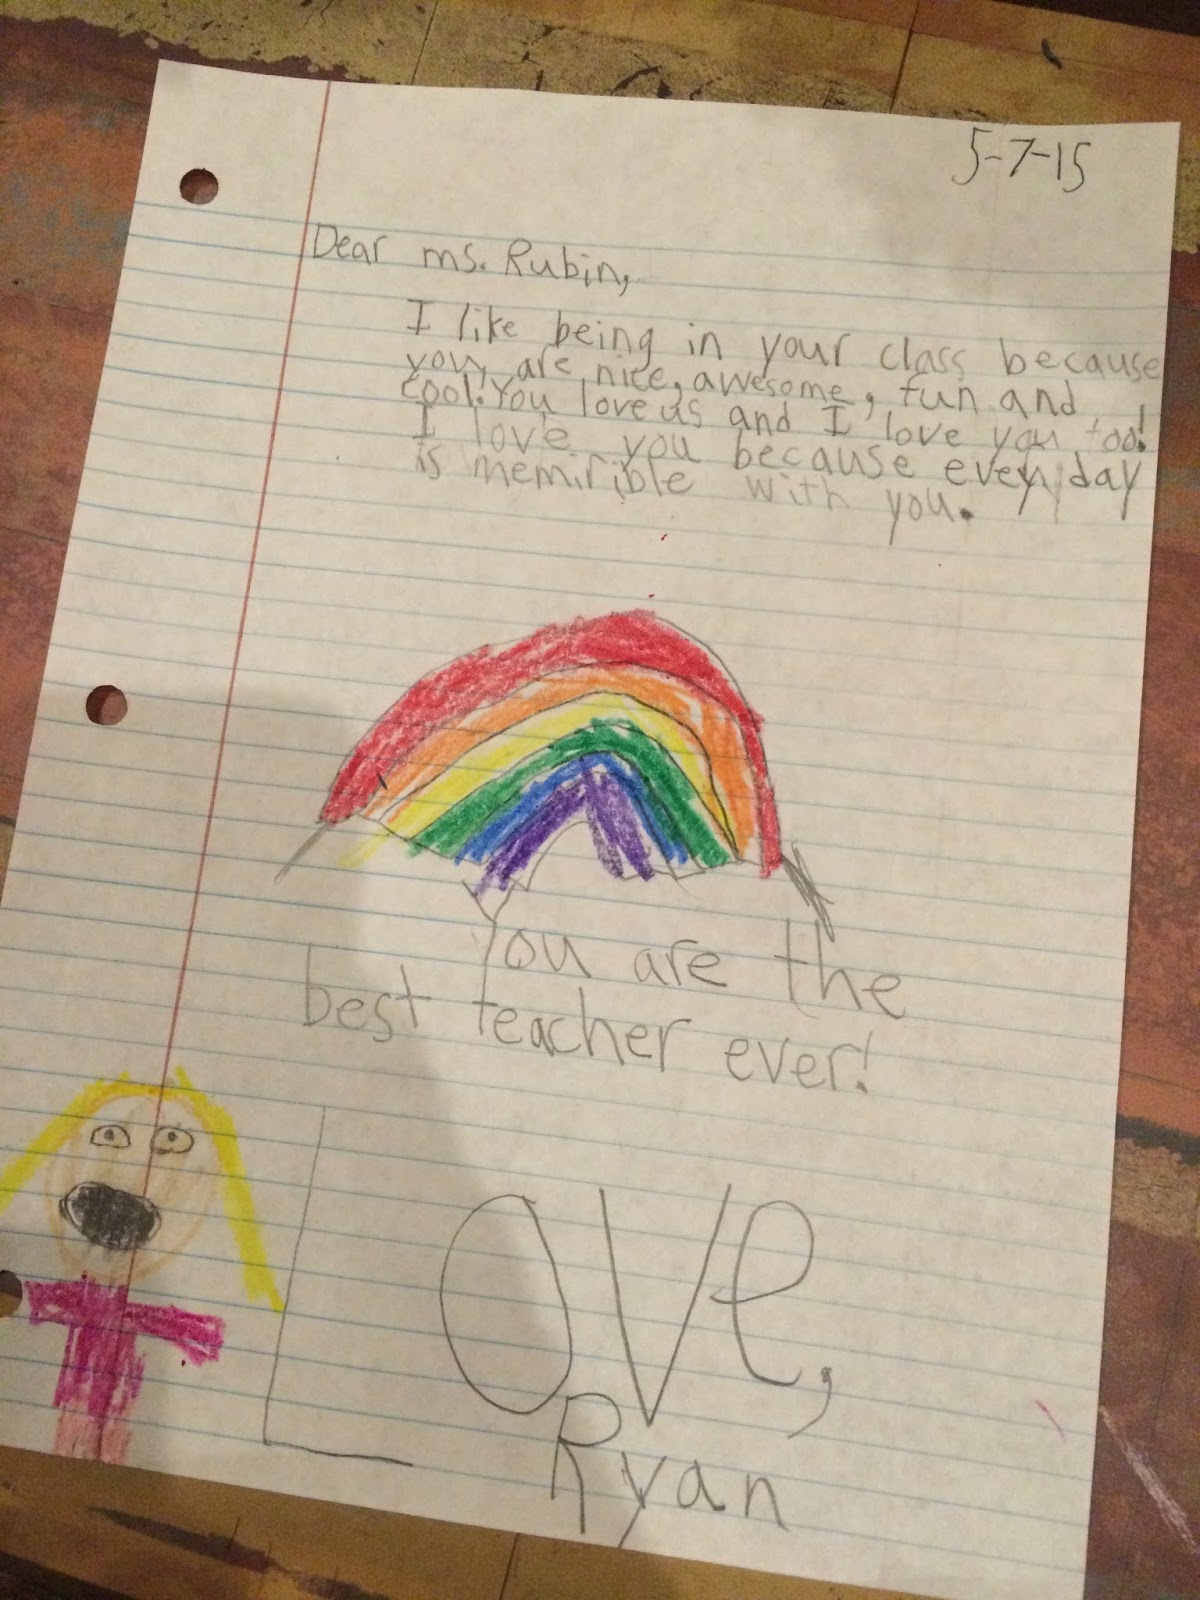 5-7-15
Dear ms. Rubin,
I like being in your class because
you are nice, awesome, fun and
cool! You love us and I love you too!
I love you because every day
is memirible with you.
You are the
best teacher ever!
Love,
Ryan